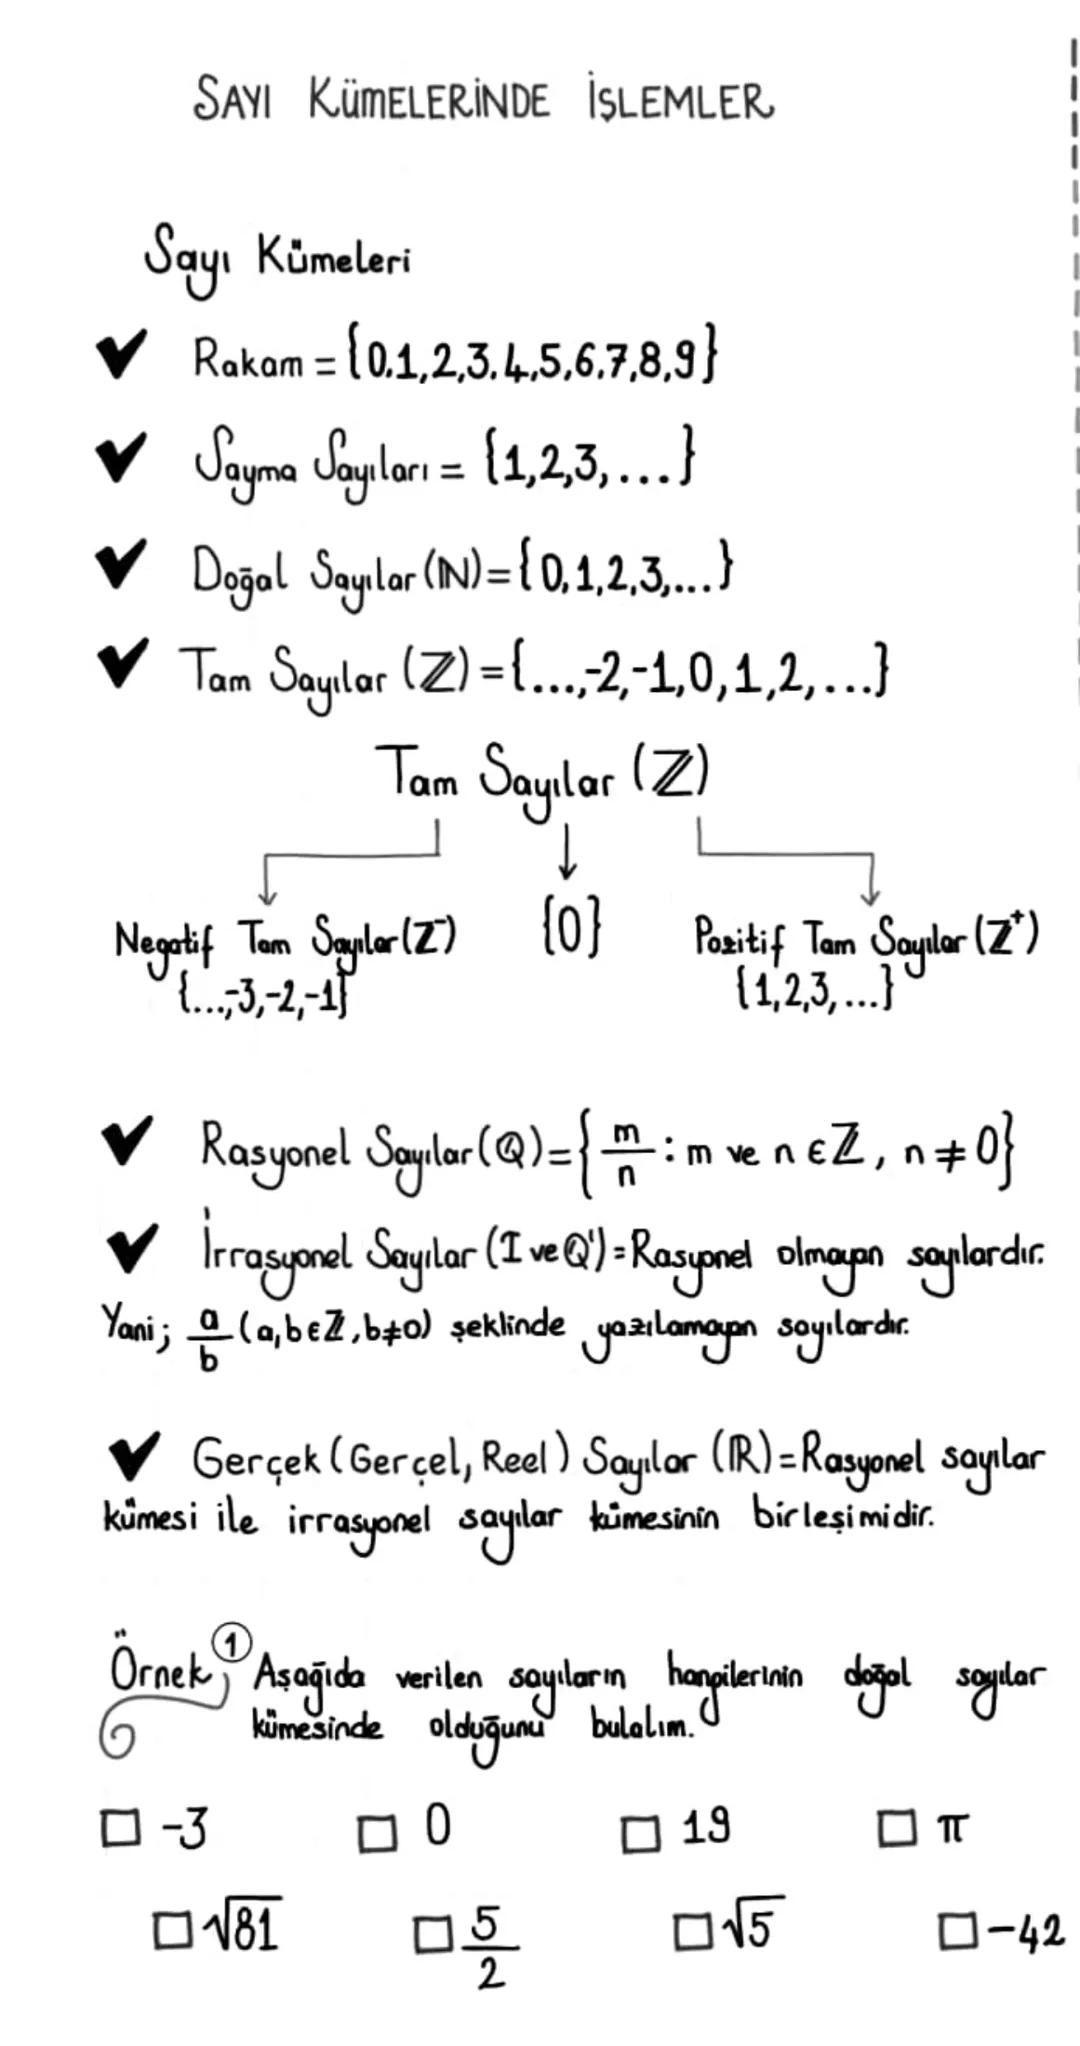 SAYI KÜMELERİNDE İŞLEMLER
Sayı Kümeleri
✔ Rakam = {0,1,2,3,4,5,6,7,8,9}
✔ Sayma Sayıları = {1,2,3,...}
✔ Doğal Sayılar (ℕ)={0,1,2,3,...}
✔ Tam Sayılar (ℤ)={...,-2,-1,0,1,2,...}
Tam Sayılar (ℤ)
Negatif Tam Sayılar(Z⁻) {0} Pozitif Tam Sayılar (Z⁺)
{...,-3,-2,-1} {1,2,3,...}
✔ Rasyonel Sayılar(ℚ)={m/n : m ve n ∈ ℤ, n ≠ 0}
✔ İrrasyonel Sayılar (I ve ℚ')=Rasyonel olmayan sayılardır.
Yani; a/b (a,b∈ℤ,b≠0) şeklinde yazılamayan sayılardır.
✔ Gerçek (Gerçel, Reel) Sayılar (ℝ)=Rasyonel sayılar
kümesi ile irrasyonel sayılar kümesinin birleşimidir.
Örnek 1 Aşağıda verilen sayıların hangilerinin doğal sayılar
kümesinde olduğunu bulalım.
☐ -3 ☐ 0 ☐ 19 ☐ π
☐ √81 ☐ 5/2 ☐ √5 ☐ -42